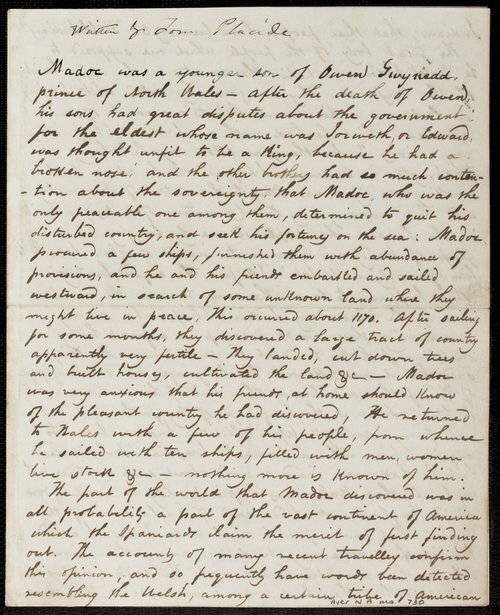 Written by Tom Placide
Madoc was a younger son of Owen Gwynedd,
prince of North Wales – After the death of Owen,
his sons had great disputes about the government:
for the eldest whose name was Jorwerth, or Edward
was thought unfit to be a King, because he had a
broken nose; and the other brothers had so much conten-
-tion about the sovereignty, that Madoc, who was the
only peaceable one among them, determined to quit his
disturbed country, and seek his fortune on the sea: Madoc
procured a few ships, furnished them with abundance of
provisions, and he and his friends embarked and sailed
westward, in search of some unknown land where they
might live in peace, this occurred about 1170. After sailing
for some months, they discovered a large tract of country
apparently very fertile – They landed, cut down trees
and built houses, cultivated the land &c – Madoc
was very anxious that his friends, at home should know
of the pleasant country he had discovered, He returned
to Wales with a few of his people, from whence
he sailed with ten ships, filled with men, women
live stock &c – nothing more is known of him.
The part of the world that Madoc discovered was in
all probability a part of the vast continent of America
which the Spaniards claim the merit of first finding
out. The accounts of many recent travellers confirm
this opinion, and so frequently have words been detected
resembling the Welsh, among a certain tribe of American
Ayer N A ms. 730